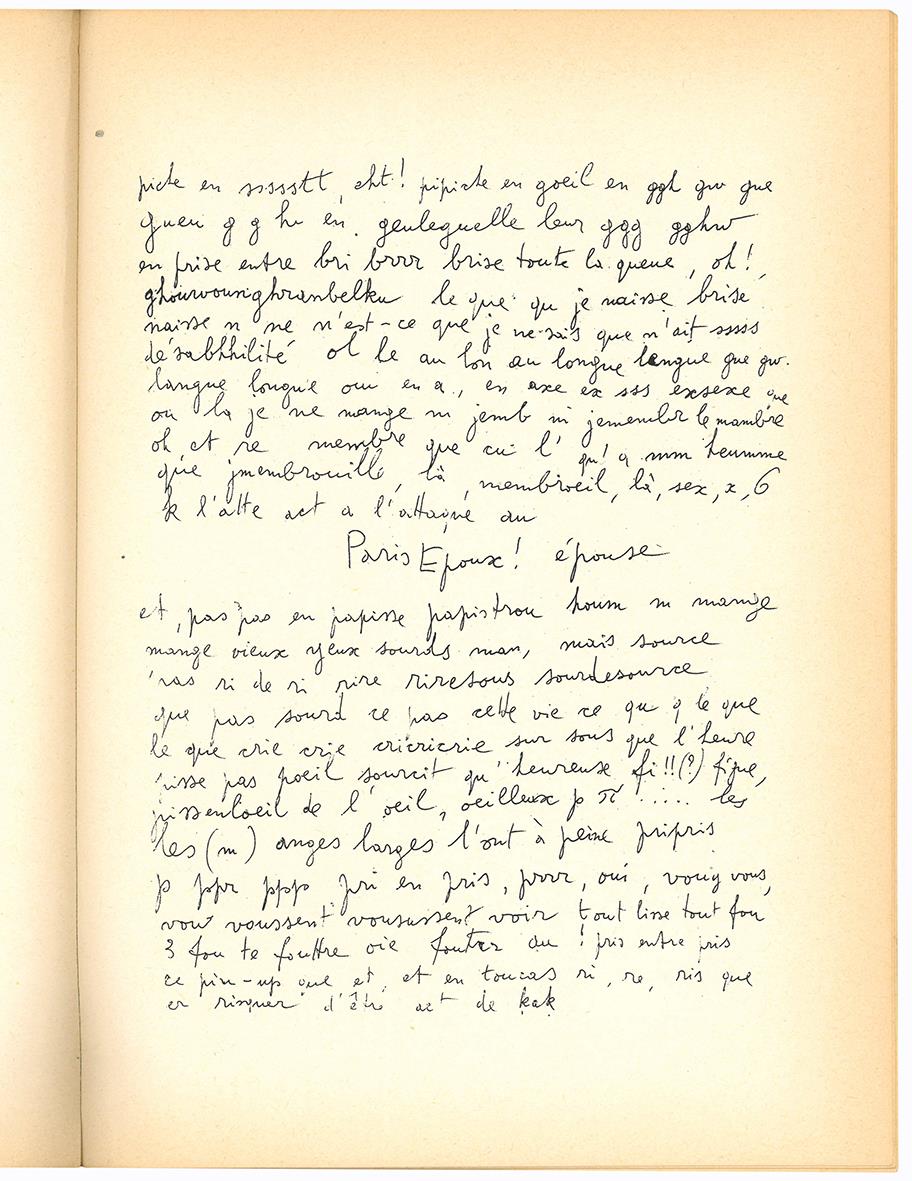 picte en sssssttt, cht! pipicte en goeil en ggh gw gue
gueu g g hu en. geuleguelle leur ggg gghw
en prise entre bri brrr brise toute la queue, oh!,
ghourvourighranbelku le que qu je naisse brise
naisse n ne n'est-ce que je ne sais que n'ait sssss
désabhhilité ol le au lon au longue langue gue gw.
langue longue oui en a., en axe ex sss exsexe que
ou la je ne mange m jemb m jemembr le mambre
oh et re membre que cui l' qu' a mm heumme
que jmembrouille, là, membroeil, là, sex, x, 6
k l'atte act a l'attaque au
Paris Epoux! épouse
et, pas pas en papisse papistrou houm m mange
mange vieux yeux sourds man, mais source
ras ri de ri rire riresous sourdesource
que pas sourd ce pas cette vie ce qu q le que
le que crie crie cricricrie sur sous que l'heure
isse pas poeil sourcit qu' heureuse fi!!(?) figue,
pissenloeil de l'oeil, oeilleux p π ..... les
les (m) anges larges l'ont à peine pripris
p ppr pppp pri en pris, prrr, oui, voug vous,
vou voussent voususent voir tout lisse tout fou
3 fou te fouttre oie fouter du ! pris entre pris
ce pin-up que et, et en toucas ri, re, ris que
er risquer d'être act de kak